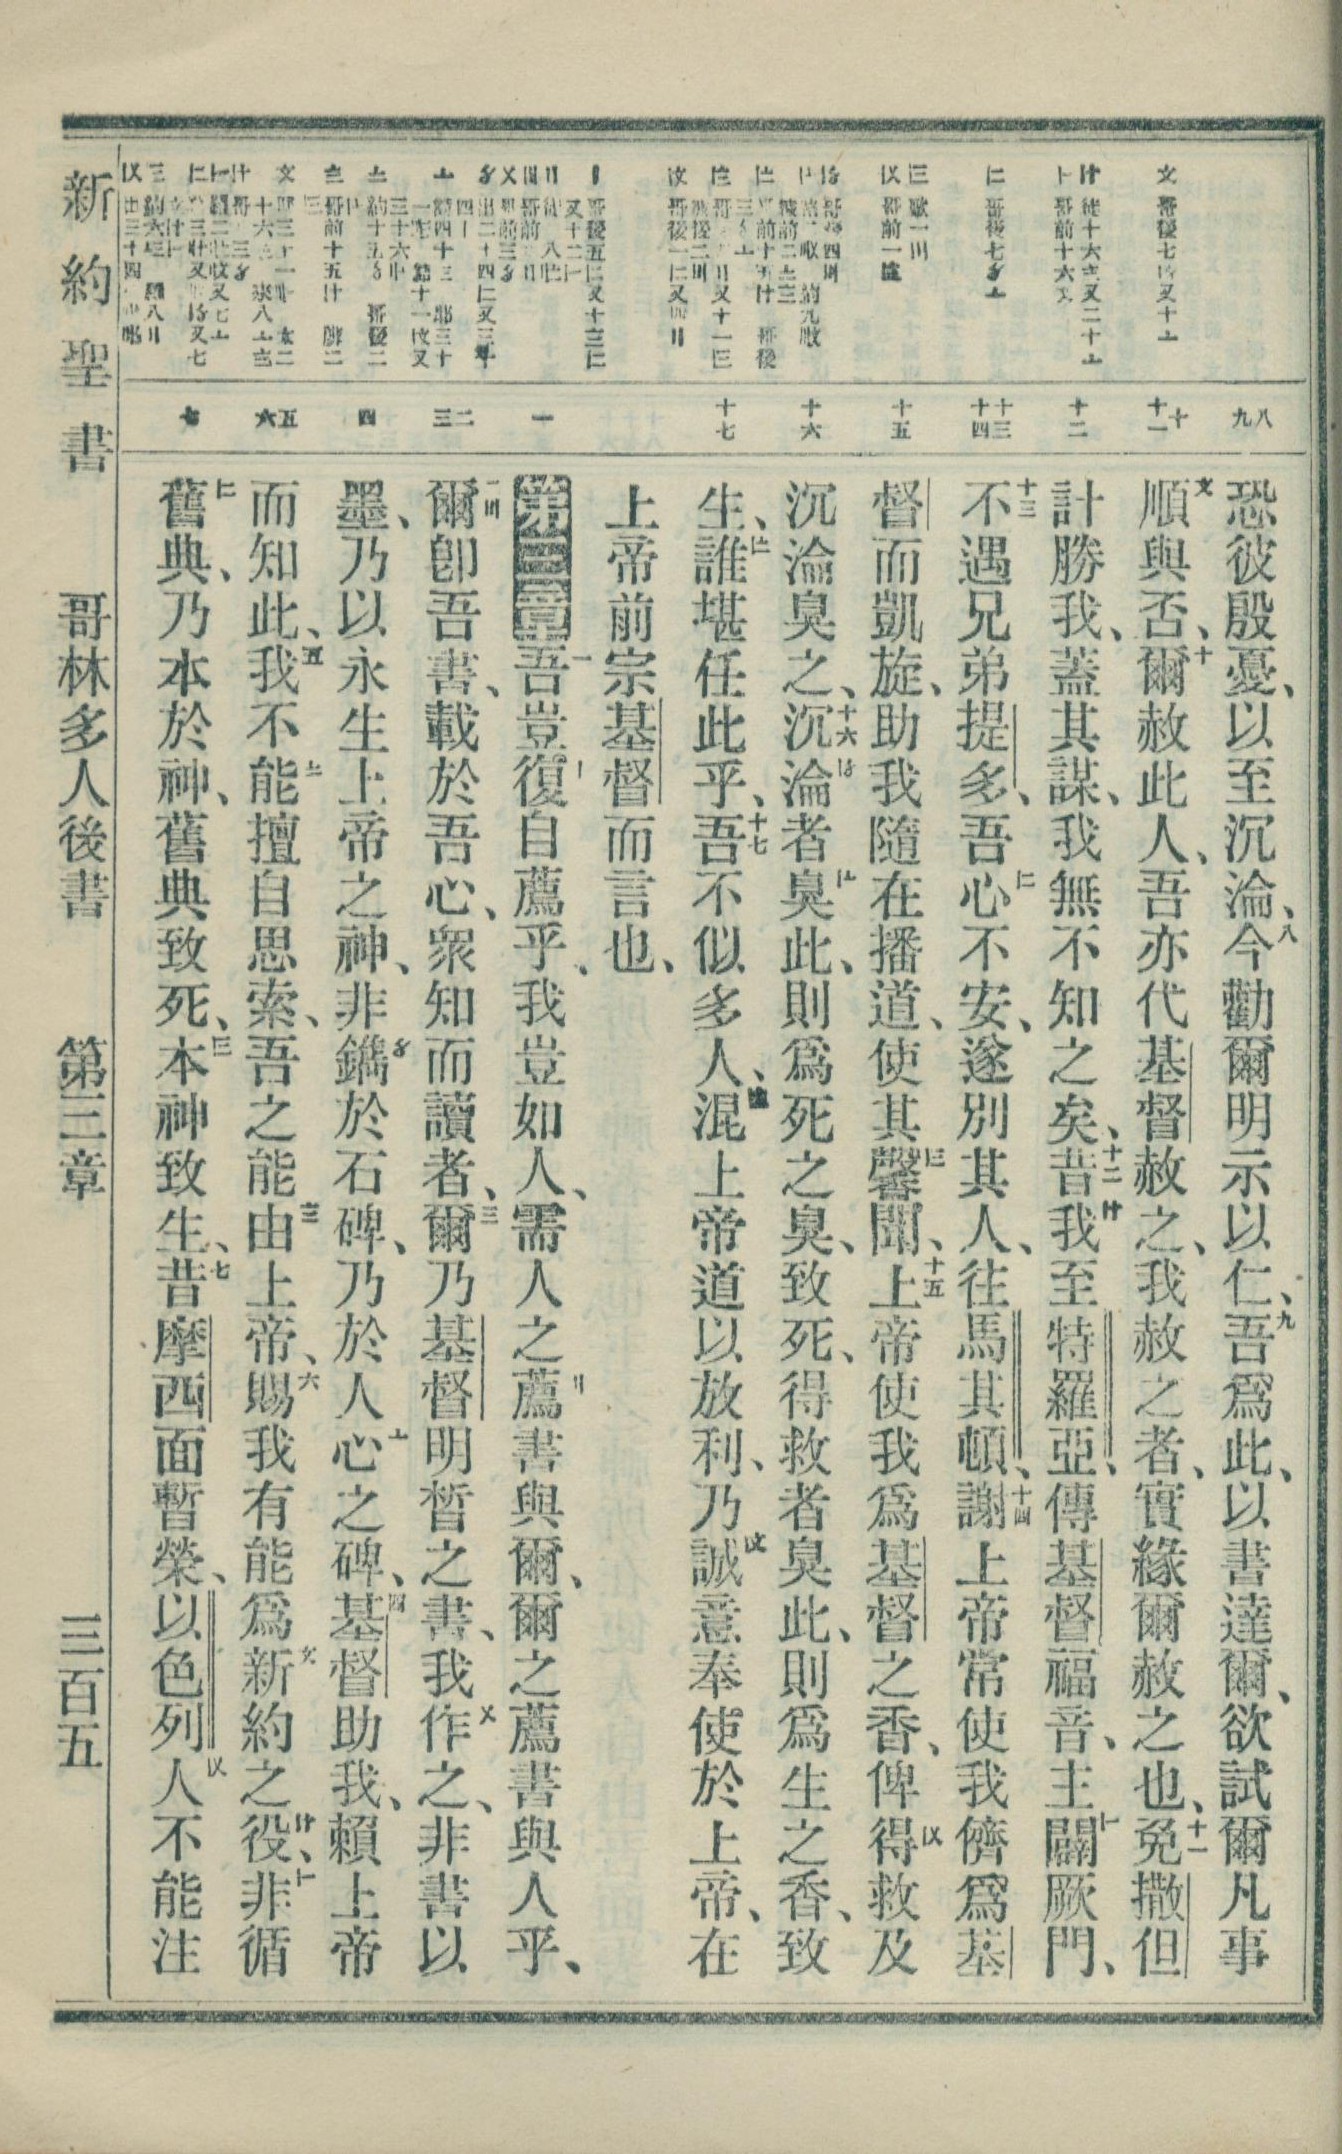 恐彼殷憂、以至沉淪、八今勸爾明示以仁、九吾爲此、以書達爾、欲試爾凡事
順與否、十爾赦此人、吾亦代基督赦之、我赦之者、實緣爾赦之也、十一免撒但
計勝我、蓋其謀、我無不知之矣、十二昔我至特羅亞、傳基督福音、主闢厥門、
十三不遇兄弟提多、吾心不安、遂別其人、往馬其頓、十四謝上帝常使我儕爲基
督而凱旋、助我隨在播道、使其馨聞、十五上帝使我爲基督之香、俾得救及
沉淪臭之、十六沉淪者臭此、則爲死之臭、致死、得救者臭此、則爲生之香、致
生、誰堪任此乎、十七吾不似多人、混上帝道以放利、乃誠意奉使於上帝、在
上帝前宗基督而言也、
第三章 一吾豈復自薦乎、我豈如人、需人之薦書與爾、爾之薦書與人乎、
二爾卽吾書、載於吾心、衆知而讀者、三爾乃基督明晳之書、我作之、非書以
墨、乃以永生上帝之神、非鐫於石碑、乃於人心之碑、四基督助我、賴上帝
而知此、五我不能擅自思索、吾之能由上帝、六賜我有能爲新約之役、非循
舊典、乃本於神、舊典致死、本神致生、七昔摩西面暫榮、以色列人不能注
八
九
十
十一
十二
十三
十四
十五
十六
十七
一
二
三
四
五
六
七
新約聖書 哥林多人後書 第三章 三百五